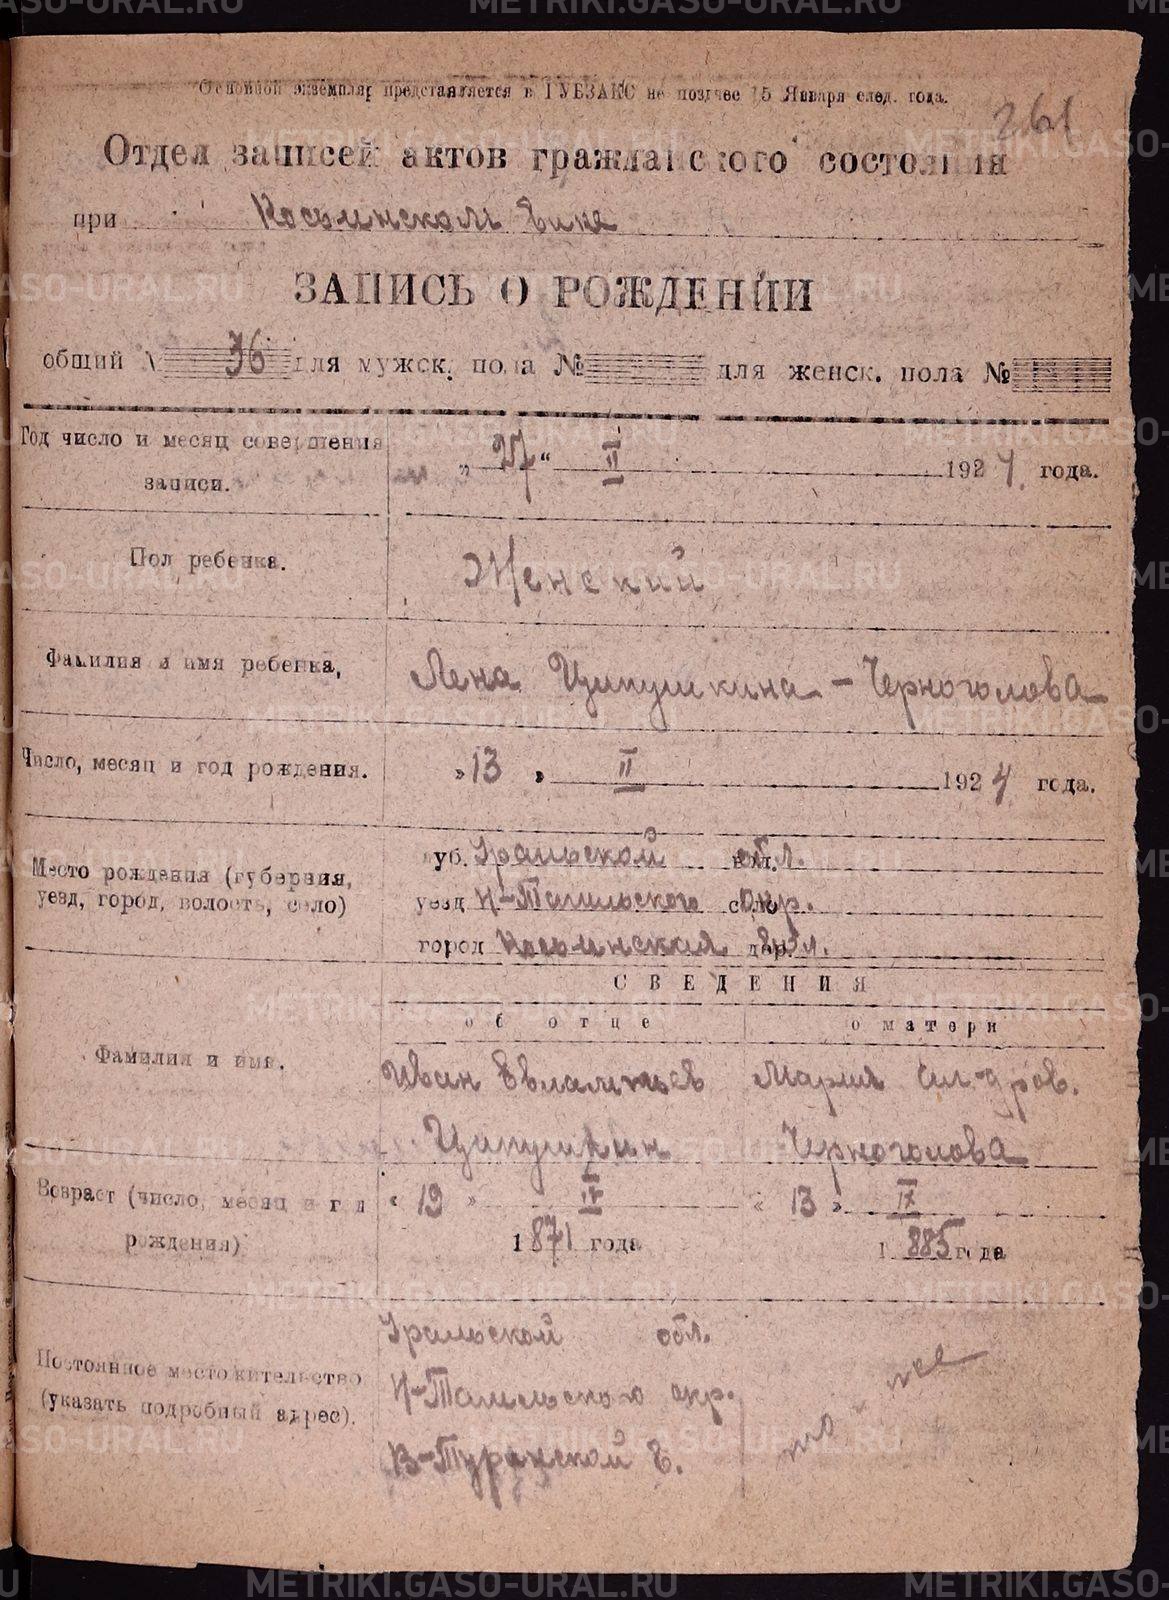 Основной экземпляр представляется в ГУБЗАКС не позднее 15 Января след. года.
261
Отдел записей актов гражданского состояния
при Косьинском Вике
ЗАПИСЬ О РОЖДЕНИИ
общий № 36 для мужск. пола № для женск. пола №
Год число и месяц совершения записи.
„ 27 “ II 1924 года.
Пол ребенка.
Женский
Фамилия и имя ребенка,
Лена Ципушкина - Черноголова
Число, месяц и год рождения.
„ 13 „ II 1924 года.
Место рождения (губерния,
уезд, город, волость, село)
губ. Уральской вол. обл.
уезд Н-Тагильского село окр.
город дер.
СВЕДЕНИЯ
об отце
о матери
Фамилия и имя.
Иван
Мария
Ципушкин
Черноголова
Возраст (число, месяц и год
рождения)
« 19 » IV
1871 года
« 13 » IX
1885 года
Постоянное местожительство
(указать подробный адрес).
Уральской обл.
Н-Тагильского окр.
В-Туринской в.
то же
METRIKI.GASO-URAL.RU